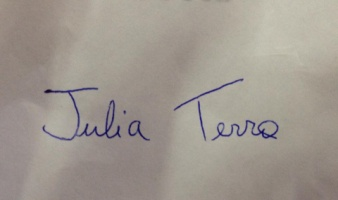 Julia Terra